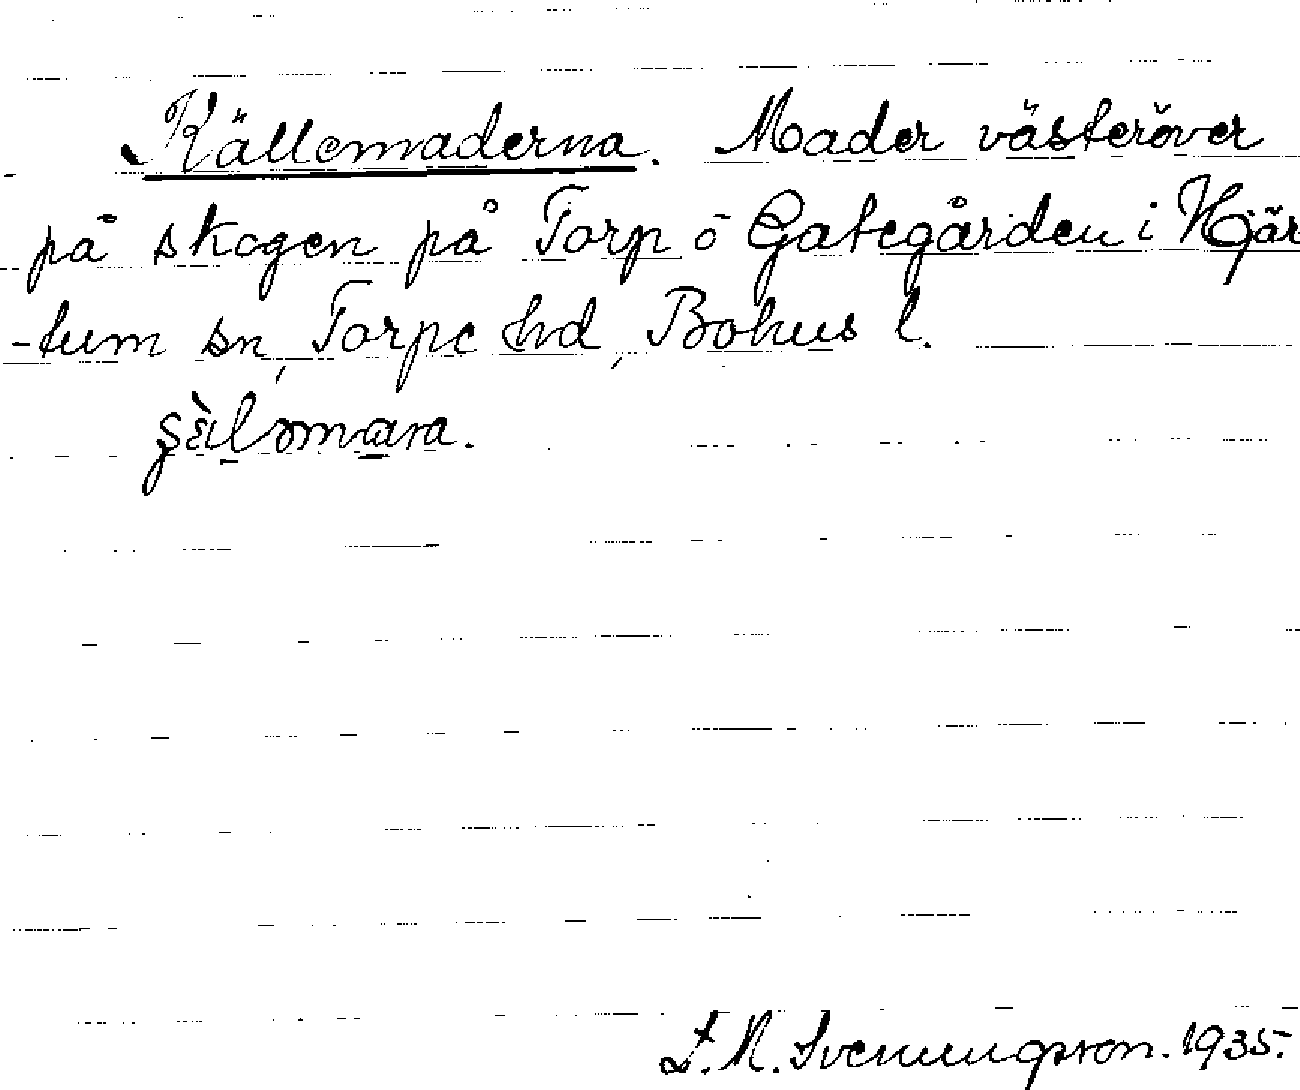 Källemaderna. Mader västeröver
på skogen på Torp o Gategården i Hjär
-tum sn, Torpe hd, Bohus l.
L. M. Svenungsson. 1935.